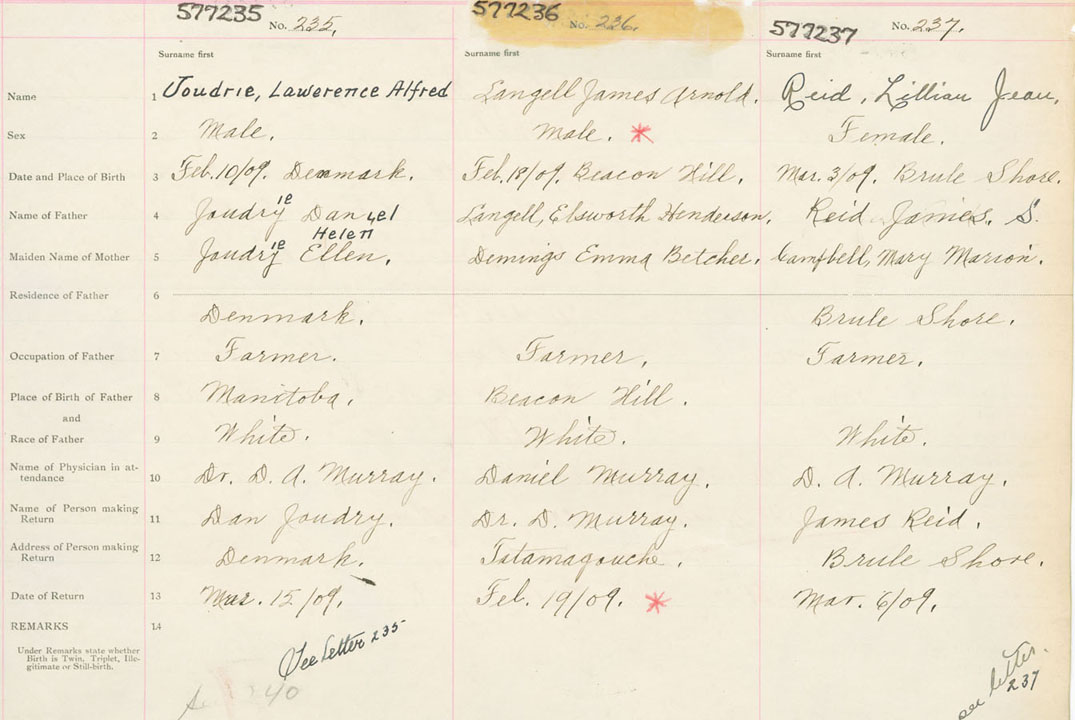 577235 No. 235. 577236 No. 236. 577237 No. 237.
Surname first Surname first Surname first
Name 1 Joudrie, Lawerence Alfred Langell James Arnold. Reid, Lillian Jean.
Sex 2 Male. Male. * Female.
Date and Place of Birth 3 Feb. 10/09. Denmark. Feb. 18/09. Beacon Hill. Mar. 3/09. Brule Shore.
ie
Name of Father 4 Joudry Daniel Langell, Elsworth Henderson. Reid James. S.
ie Helen
Maiden Name of Mother 5 Joudry Ellen. Demings Emma Betcher. Campbell, Mary Marion.
Residence of Father 6
Denmark. Brule Shore.
Occupation of Father 7 Farmer. Farmer. Farmer.
Place of Birth of Father 8 Manitoba. Beacon Hill.
and
Race of Father 9 White. White. White.
Name of Physician in at-
tendance 10 Dr. D. A. Murray. Daniel Murray. D. A. Murray.
Name of Person making
Return 11 Dan Joudry. Dr. D. Murray. James Reid.
Address of Person making
Return 12 Denmark. Tatamagouche. Brule Shore.
Date of Return 13 Mar. 15/09. Feb. 19/09. * Mar. 6/09.
REMARKS 14
Under Remarks state whether
Birth is Twin, Triplet, Ille-
gitimate or Still-birth.
See letter 235
see letter
237